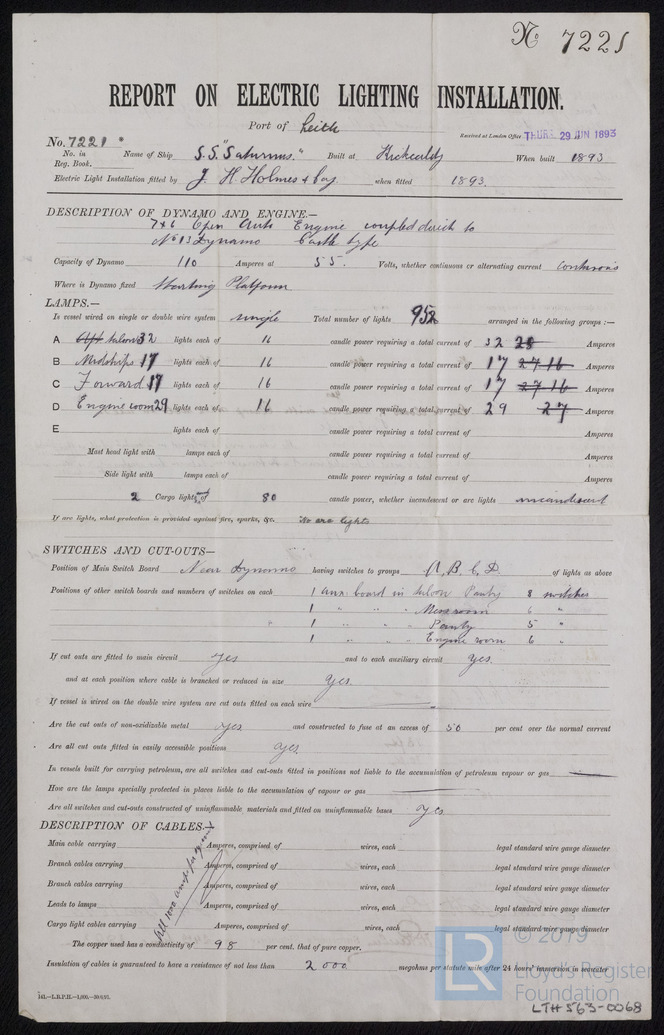 No 7221
REPORT ON ELECTRIC LIGHTING INSTALLATION.
Port of Leith
No. 7221 Received at London Office THURS 29 JUN 1893
No. in Reg. Book. Name of Ship S.S. "Saturnus." Built at Kirkcaldy When built 1893
Electric Light Installation fitted by J. H. Holmes & Coy. when fitted 1893.
DESCRIPTION OF DYNAMO AND ENGINE.—
7 x 6 Open Engine coupled direct to
No 13 Dynamo Castle type
Capacity of Dynamo 110 Amperes at 55. Volts, whether continuous or alternating current continuous
Where is Dynamo fixed Starting Platform
LAMPS.—
Is vessel wired on single or double wire system single Total number of lights 95 arranged in the following groups :—
A Aft Saloon 32 lights each of 16 candle power requiring a total current of 32 Amperes
B Midships 17 lights each of 16 candle power requiring a total current of 17 27 16 Amperes
C Forward 17 lights each of 16 candle power requiring a total current of 17 27 16 Amperes
D Engine room 29 lights each of 16 candle power requiring a total current of 29 27 Amperes
E lights each of candle power requiring a total current of Amperes
Mast head light with lamps each of candle power requiring a total current of Amperes
Side light with lamps each of candle power requiring a total current of Amperes
2 Cargo lights of 80 candle power, whether incandescent or arc lights incandescent
If arc lights, what protection is provided against fire, sparks, &c. No arc lights
SWITCHES AND CUT-OUTS—
Position of Main Switch Board Near Dynamo having switches to groups A, B, C, D of lights as above
Positions of other switch boards and numbers of switches on each 1 aux: board in Saloon Pantry 8 switches
1 " " " Messroom 6 "
1 " " " Pantry 5 "
1 " " " Engine room 6 "
If cut outs are fitted to main circuit yes and to each auxiliary circuit yes.
and at each position where cable is branched or reduced in size yes.
If vessel is wired on the double wire system are cut outs fitted on each wire
Are the cut outs of non-oxidizable metal yes and constructed to fuse at an excess of 50 per cent over the normal current
Are all cut outs fitted in easily accessible positions yes.
In vessels built for carrying petroleum, are all switches and cut-outs fitted in positions not liable to the accumulation of petroleum vapour or gas
How are the lamps specially protected in places liable to the accumulation of vapour or gas
Are all switches and cut-outs constructed of uninflammable materials and fitted on uninflammable bases yes
DESCRIPTION OF CABLES—
Main cable carrying Amperes, comprised of wires, each legal standard wire gauge diameter
Branch cables carrying Amperes, comprised of wires, each legal standard wire gauge diameter
Branch cables carrying Amperes, comprised of wires, each legal standard wire gauge diameter
Leads to lamps Amperes, comprised of wires, each legal standard wire gauge diameter
Cargo light cables carrying Amperes, comprised of wires, each legal standard wire gauge diameter
All 1000 amps per sq inch
The copper used has a conductivity of 98 per cent. that of pure copper.
Insulation of cables is guaranteed to have a resistance of not less than 2000 megohms per statute mile after 24 hours' immersion in seawater
© 2019
LR Lloyd's Register
Foundation
LTH563-0068